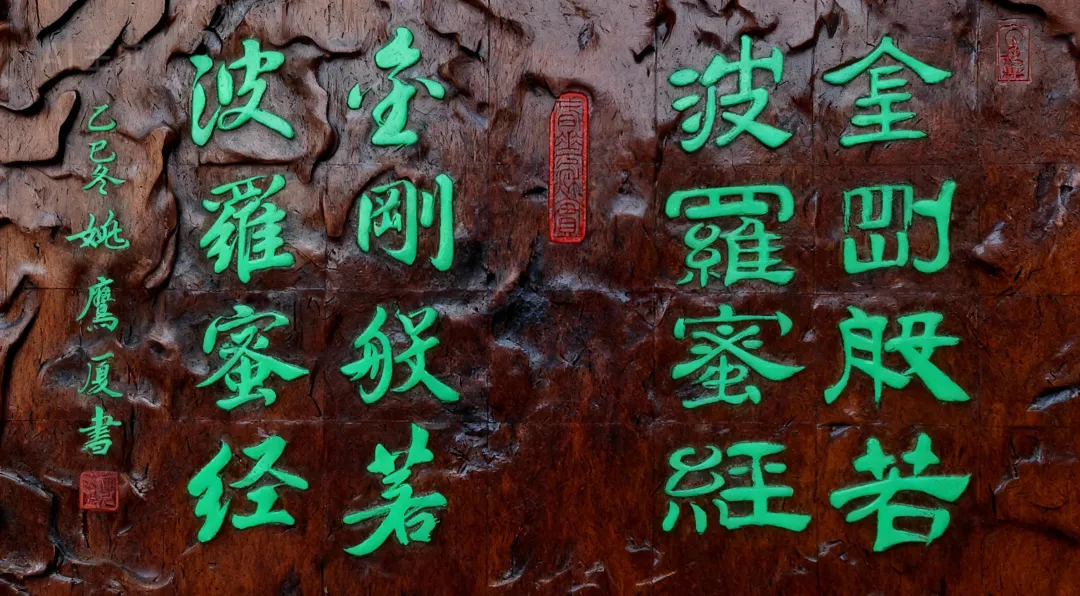 金剛般若
波羅蜜經
金剛般若
波羅蜜经
乙巳冬姚鹰厦書